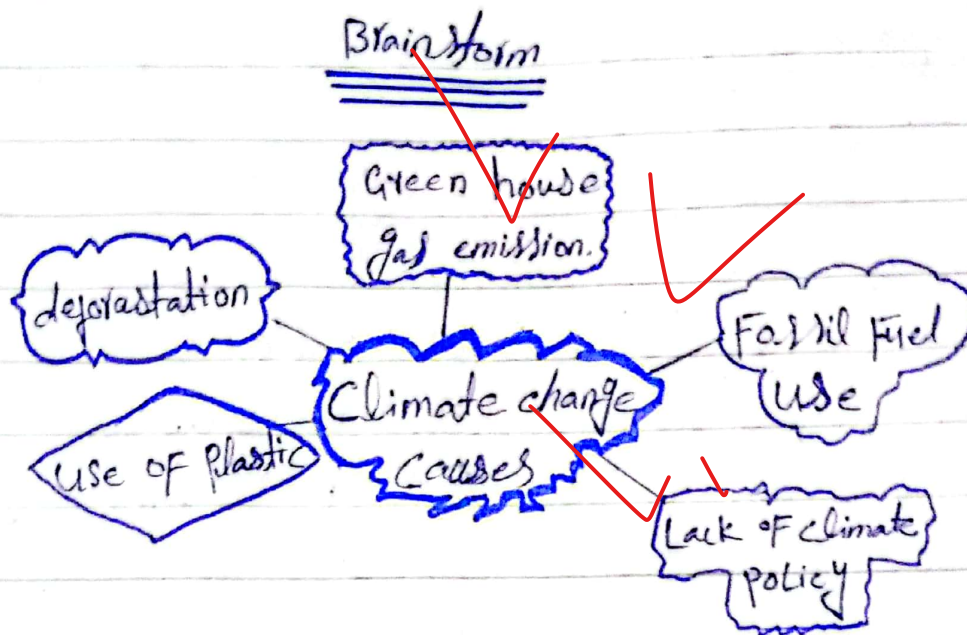 Brainstorm
Green house
gas emission.
deforastation
Fossil Fuel
use
Climate change
causes
use of Plastic
Lack of climate
policy